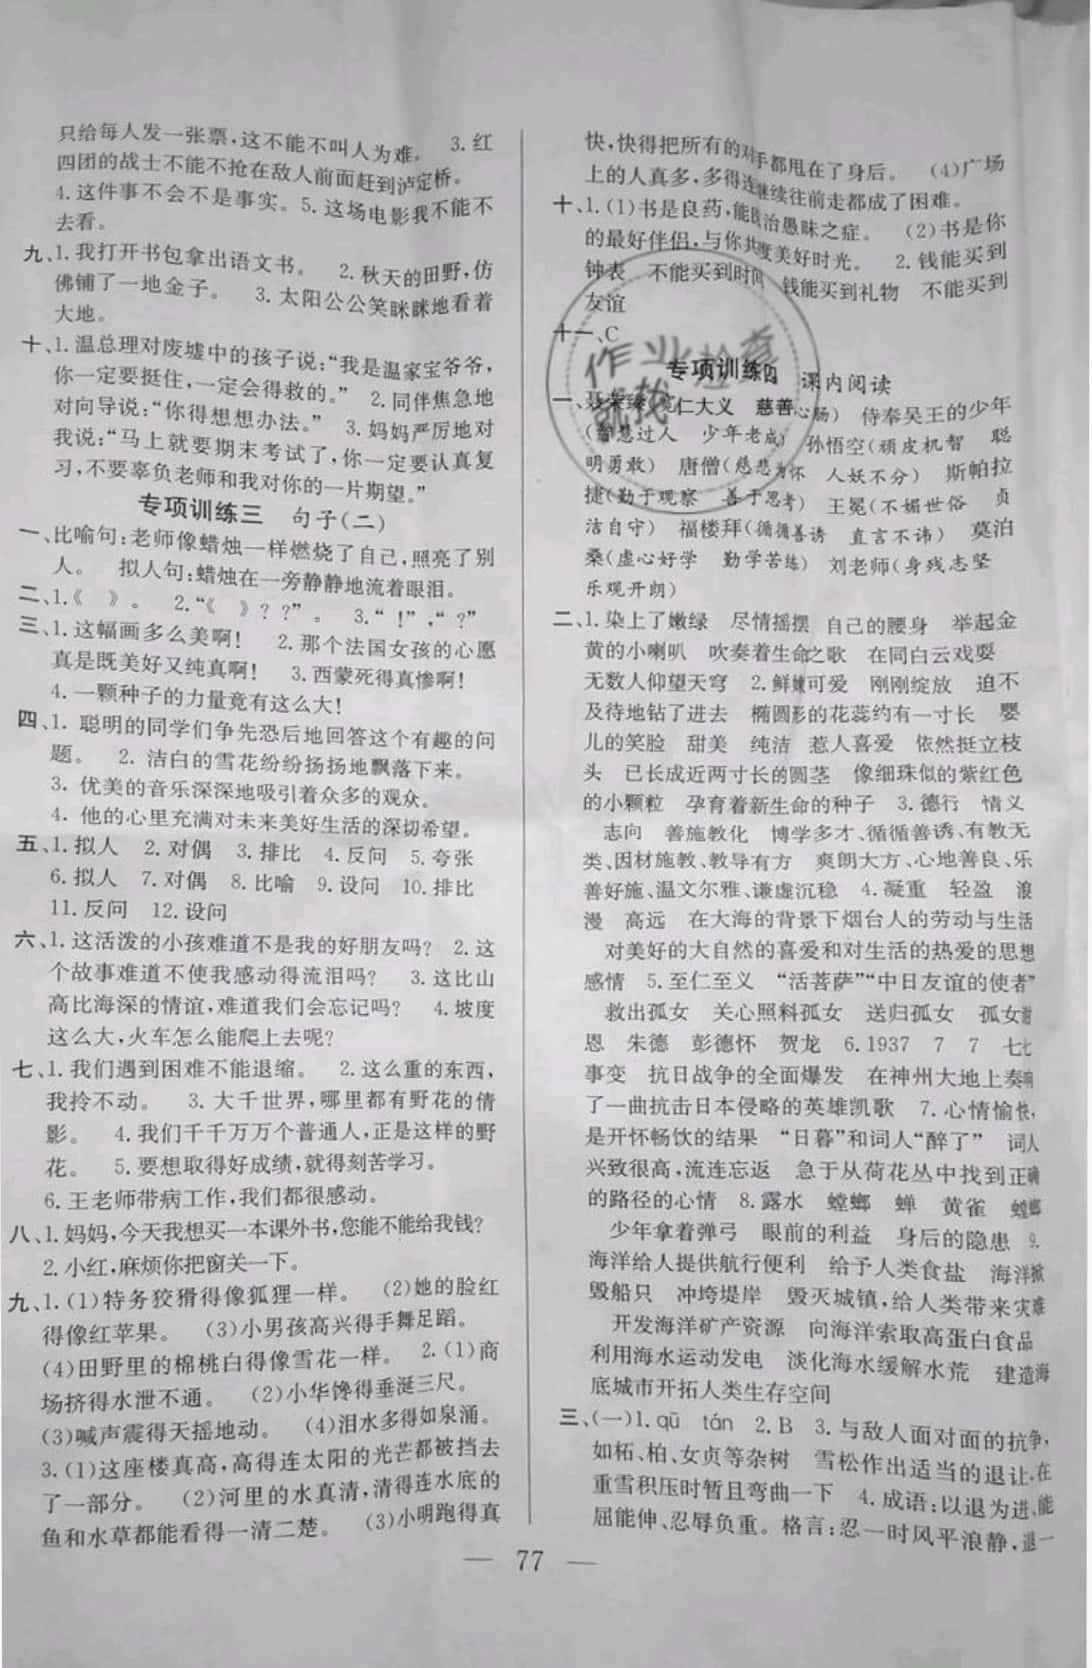 只给每人发一张票,这不能不叫人为难。 3.红
四团的战士不能不抢在敌人前面赶到泸定桥。
4.这件事不会不是事实。5.这场电影我不能不
去看。
九、1.我打开书包拿出语文书。 2.秋天的田野,仿
佛铺了一地金子。 3.太阳公公笑眯眯地看着
大地。
十、1.温总理对废墟中的孩子说:“我是温家宝爷爷,
你一定要挺住,一定会得救的。” 2.同伴焦急地
对向导说:“你得想想办法。” 3.妈妈严厉地对
我说:“马上就要期末考试了,你一定要认真复
习,不要辜负老师和我对你的一片期望。”
专项训练三 句子(二)
一、比喻句:老师像蜡烛一样燃烧了自己,照亮了别
人。 拟人句:蜡烛在一旁静静地流着眼泪。
二、1.《 》。 2.“《 》? ?”。 3.“ !”,“ ?”
三、1.这幅画多么美啊! 2.那个法国女孩的心愿
真是既美好又纯真啊! 3.西蒙死得真惨啊!
4.一颗种子的力量竟有这么大!
四、1. 聪明的同学们争先恐后地回答这个有趣的问
题。 2. 洁白的雪花纷纷扬扬地飘落下来。
3. 优美的音乐深深地吸引着众多的观众。
4. 他的心里充满对未来美好生活的深切希望。
五、1.拟人 2.对偶 3.排比 4.反问 5.夸张
6.拟人 7.对偶 8.比喻 9.设问 10.排比
11.反问 12.设问
六、1.这活泼的小孩难道不是我的好朋友吗? 2.这
个故事难道不使我感动得流泪吗? 3.这比山
高比海深的情谊,难道我们会忘记吗? 4.坡度
这么大,火车怎么能爬上去呢?
七、1.我们遇到困难不能退缩。 2.这么重的东西,
我拎不动。 3.大千世界,哪里都有野花的倩
影。 4.我们千千万万个普通人,正是这样的野
花。 5.要想取得好成绩,就得刻苦学习。
6.王老师带病工作,我们都很感动。
八、1.妈妈,今天我想买一本课外书,您能不能给我钱?
2.小红,麻烦你把窗关一下。
九、1.(1)特务狡猾得像狐狸一样。 (2)她的脸红
得像红苹果。 (3)小男孩高兴得手舞足蹈。
(4)田野里的棉桃白得像雪花一样。 2.(1)商
场挤得水泄不通。 (2)小华馋得垂涎三尺。
(3)喊声震得天摇地动。 (4)泪水多得如泉涌。
3.(1)这座楼真高,高得连太阳的光芒都被挡去
了一部分。 (2)河里的水真清,清得连水底的
鱼和水草都能看得一清二楚。 (3)小明跑得真
快,快得把所有的对手都甩在了身后。 (4)广场
上的人真多,多得连继续往前走都成了困难。
十、1.(1)书是良药,能医治愚昧之症。 (2)书是你
的最好伴侣,与你共度美好时光。 2.钱能买到
钟表 不能买到时间 钱能买到礼物 不能买到
友谊
十一、C
专项训练四 课内阅读
一、聂荣臻( 仁大义 慈善心肠) 侍奉吴王的少年
(智慧过人 少年老成) 孙悟空(顽皮机智 聪
明勇敢) 唐僧(慈悲为怀 人妖不分) 斯帕拉
捷(勤于观察 善于思考) 王冕(不媚世俗 贞
洁自守) 福楼拜(循循善诱 直言不讳) 莫泊
桑(虚心好学 勤学苦练) 刘老师(身残志坚
乐观开朗)
二、1.染上了嫩绿 尽情摇摆 自己的腰身 举起金
黄的小喇叭 吹奏着生命之歌 在同白云戏耍
无数人仰望天穹 2.鲜嫩可爱 刚刚绽放 迫不
及待地钻了进去 椭圆形的花蕊约有一寸长 婴
儿的笑脸 甜美 纯洁 惹人喜爱 依然挺立枝
头 已长成近两寸长的圆茎 像细珠似的紫红色
的小颗粒 孕育着新生命的种子 3.德行 情义
志向 善施教化 博学多才、循循善诱、有教无
类、因材施教、教导有方 爽朗大方、心地善良、乐
善好施、温文尔雅、谦虚沉稳 4.凝重 轻盈 浪
漫 高远 在大海的背景下烟台人的劳动与生活
对美好的大自然的喜爱和对生活的热爱的思想
感情 5.至仁至义 “活菩萨”“中日友谊的使者”
救出孤女 关心照料孤女 送归孤女 孤女谢
恩 朱德 彭德怀 贺龙 6.1937 7 7 七七
事变 抗日战争的全面爆发 在神州大地上奏响
了一曲抗击日本侵略的英雄凯歌 7.心情愉快,
是开怀畅饮的结果 “日暮”和词人“醉了” 词人
兴致很高,流连忘返 急于从荷花丛中找到正确
的路径的心情 8.露水 螳螂 蝉 黄雀 螳螂
少年拿着弹弓 眼前的利益 身后的隐患 9.
海洋给人提供航行便利 给予人类食盐 海洋掀
毁船只 冲垮堤岸 毁灭城镇,给人类带来灾难
开发海洋矿产资源 向海洋索取高蛋白食品
利用海水运动发电 淡化海水缓解水荒 建造海
底城市开拓人类生存空间
三、(一)1.qū tán 2.B 3.与敌人面对面的抗争,
如柘、柏、女贞等杂树 雪松作出适当的退让,在
重雪积压时暂且弯曲一下 4.成语:以退为进、能
屈能伸、忍辱负重。格言:忍一时风平浪静,退一
— 77 —
作业检查
就找